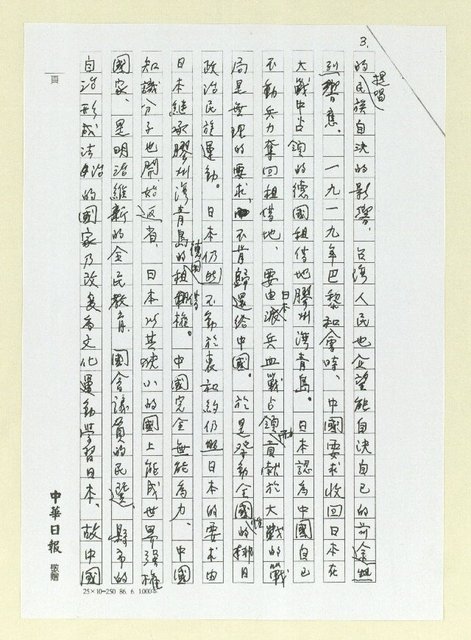 3.
的提唱民族自決的影響，台灣人民也企望能自決自己的前途
到響應。一九一九年巴黎和會時，中國要求收回日本在
大戰中占領的德國租借地膠州灣青島。日本認為中國自己
不動兵力奪回租借地，要由日本派兵血戰占領而貢獻於大戰的戰
局是無理的要求，而不肯歸還給中國。於是發動全國性的排日
政治民族運動。日本仍然不動於衷和約仍照日本的要求由
日本繼承膠州灣青島的德國租借權。中國完全無能為力。中國
知識分子也開始返省，日本以其狹小的國土能成世界強權
國家，是明治維新的全民教育、國會議員的民選、縣市的
自治形成法治的國家乃改變為文化運動學習日本，故中國
頁
中華日報
敬贈
25×10=250 86. 6. 1000本